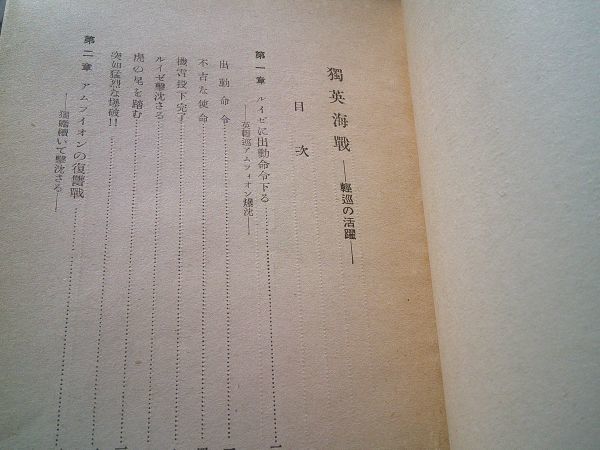 獨英海戰 ――輕巡の活躍――
目次
第一章 ルイゼに出動命令下る
英輕巡アムフィオン爆沈――
出動命令
不吉な使命
機雷投下完了
ルイゼ擊沈さる
虎の尾を踏む
突如猛烈な爆破!!
第二章 アムフィオンの復讐戰
――獨艦續いて擊沈さる――